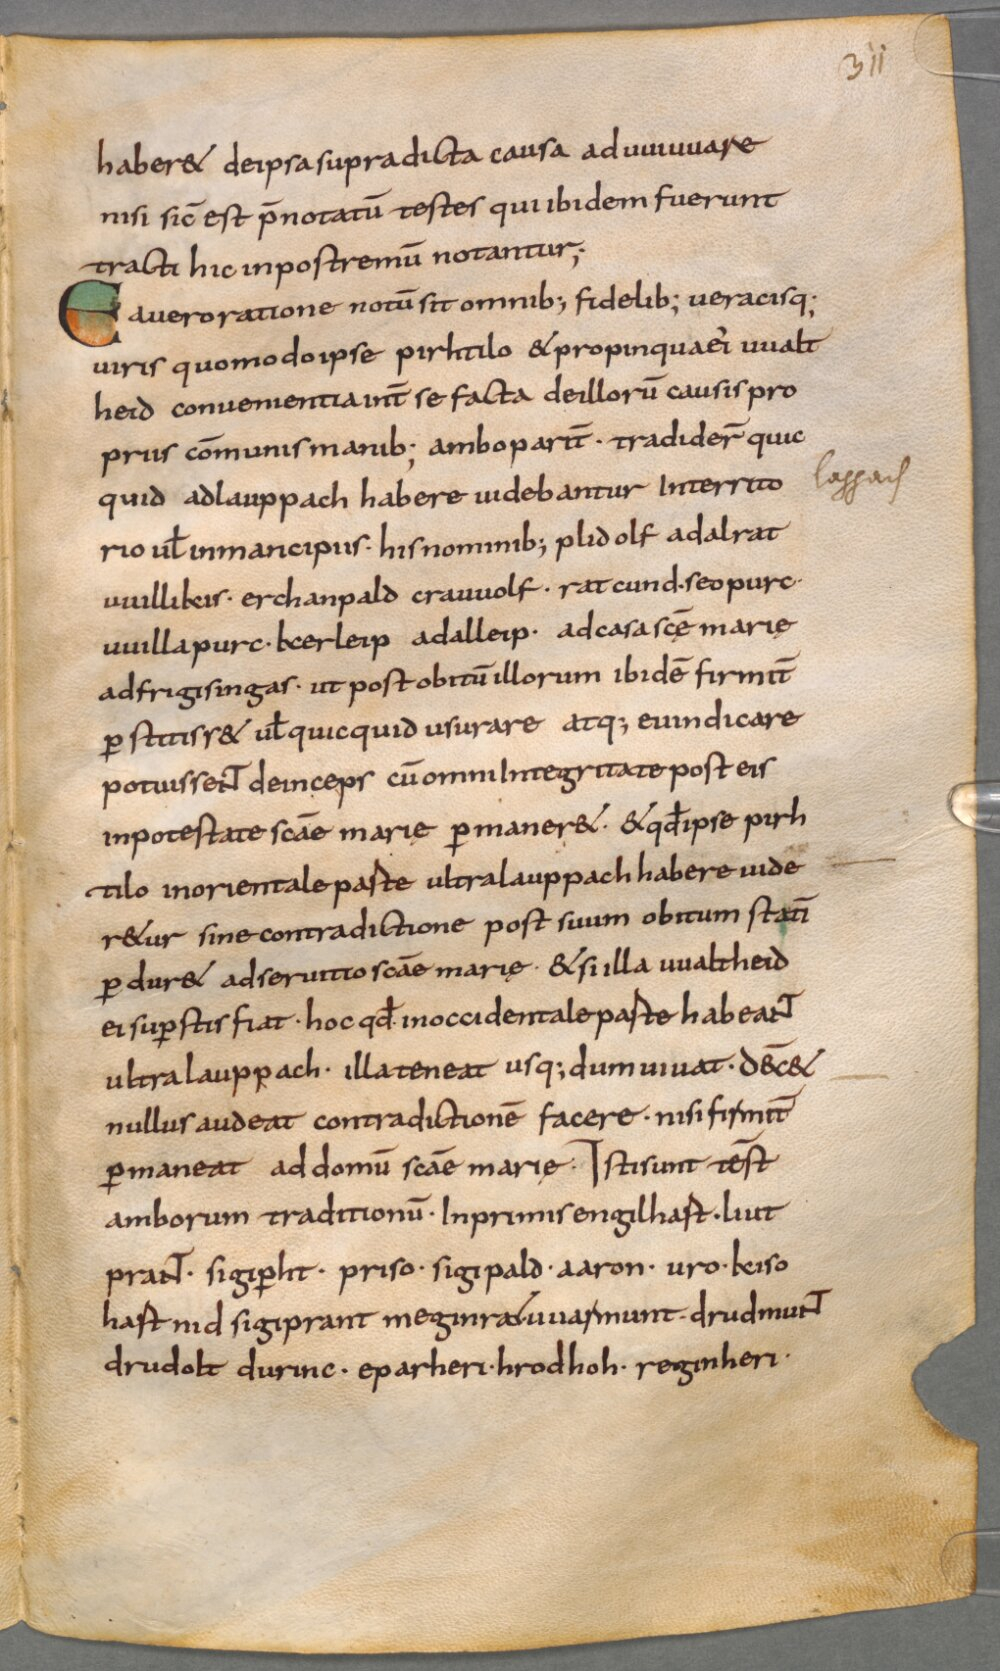 311
haber& deipsa supradicta causa ad uuiuuare
nisi sic̄ est p̄notatū testes qui ibidem fuerunt
tracti hic inpostremū notantur;
Ea uero ratione notū sit omnib; fidelib; ueracisq;
uiris quomodo ipse pirhtilo & propinqua ei uualt
heid conuenientia int̄ se facta de illorū causis pro
priis cōmunis manib; ambo parit̄ · tradider̄ quic
quid ad lauppach habere uidebantur In territo
lappach
rio ul̄ in mancipiis · his nominib; plidolf adalrat
uuillikis · erchanpald crauuolf · ratcund · seopurc ·
uuillapurc · kerleip adalleip · ad casa scę̄ marię
ad frigisingas · ut post obitū illorum ibidē firmit̄
ꝑstitisr& ul̄ quicquid usurare atq; euindicare
potuissent deinceps cū omni Integritate post eis
in potestate scāe marię ꝑmaner& · & qd̄ ipse pirh
tilo in orientale parte ultra lauppach habere uide
r&ur sine contradictione post suum obitum statī
ꝑdur& ad seruitio scāe marię · & si illa uualtheid
ei suꝑstis fiat · hoc qd̄ in occidentale parte habeant
ultra lauppach · illa teneat usq; dum uiuat · d&c̄&
nullus audeat contradictionē facere · nisi firmit̄
ꝑmaneat ad domū scāe marię · Isti sunt tēst
amborum traditionū · In primis engilhart · liut
prant · sigiꝑht · priso · sigipald · aaron · uro · keiso
hartnid sigiprant meginrat uuarmunt · drudmunt
drudolt durinc · eparheri · hrodhoh · reginheri ·